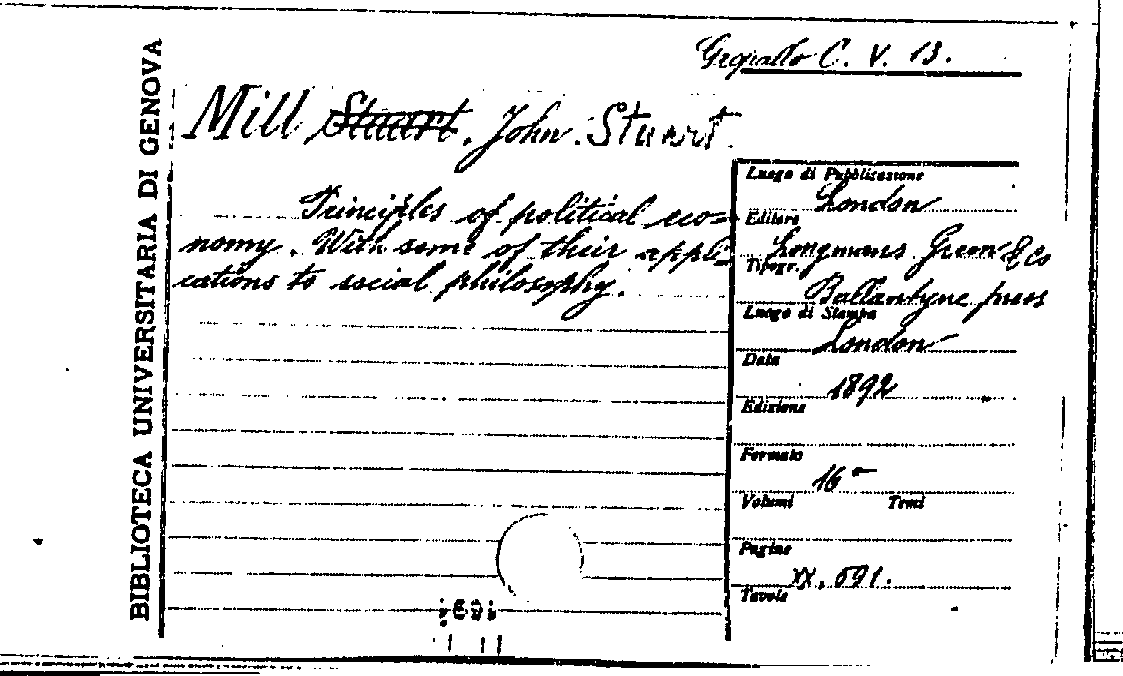 BIBLIOTECA UNIVERSITARIA DI GENOVA
C. V. 13.
Mill Stuart, John Stuart
Principles of political eco=
nomy. With some of their appli=
cations to social philosophy.
Luogo di Pubblicazione
London
Editore
Longmans Green & Co
Tipogr.
Ballantyne press
Luogo di Stampa
London
Data
1892
Edizione
Formato
16°
Volumi Tomi
Pagine
XX, 591.
Tavole